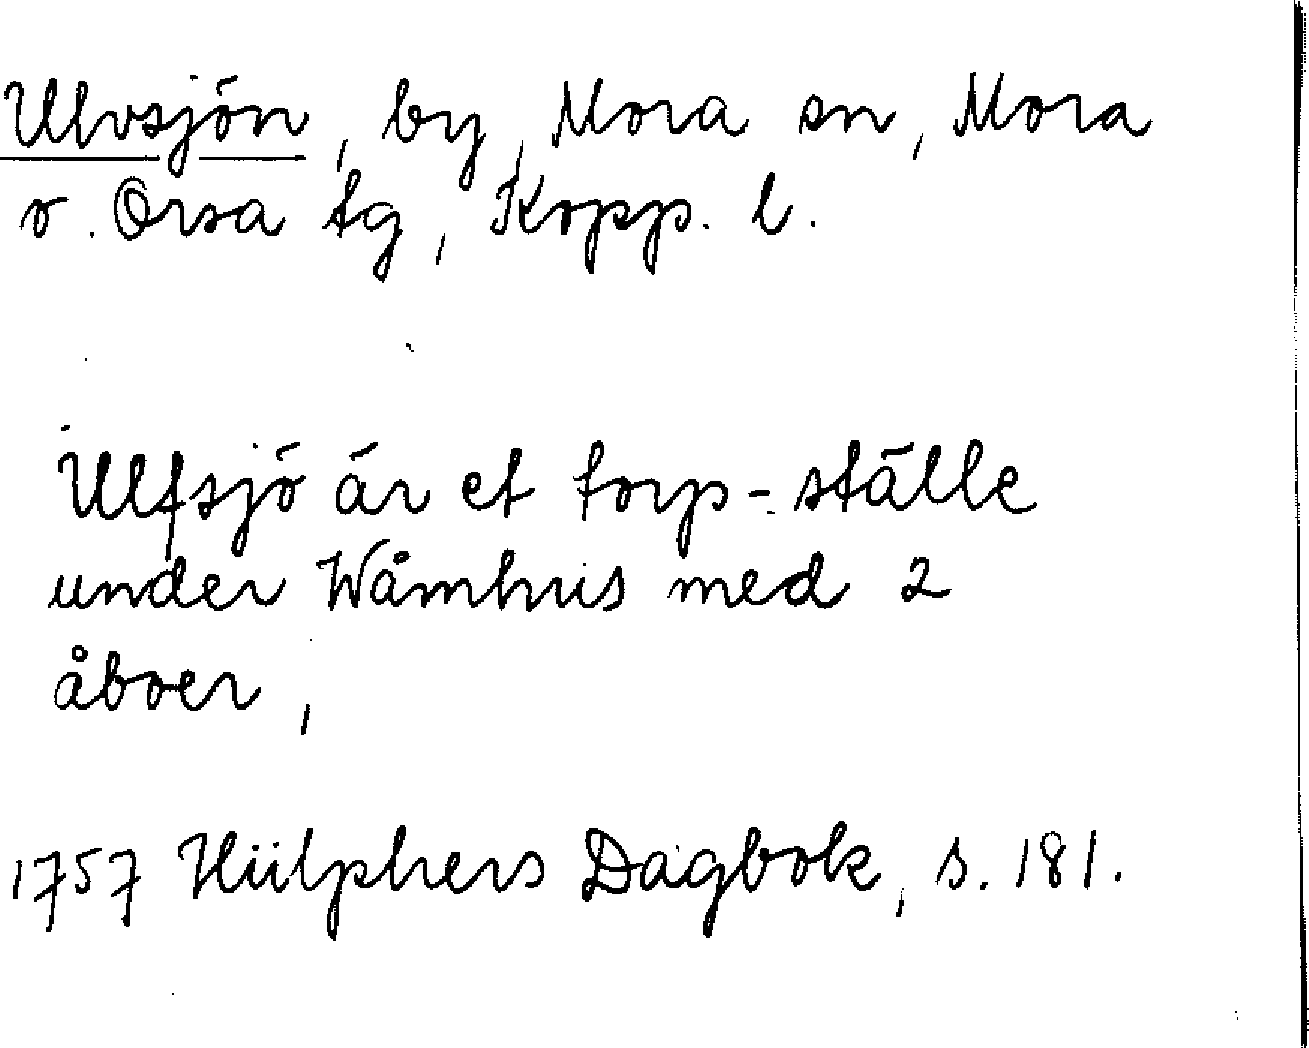 Ulvsjön, by, Mora sn, Mora
o. Orsa tg, Kopp. l.
Ulfsjö är et torp-ställe
under Wåmhus med 2
åboer,
1757 Hülphers Dagbok, s. 181.